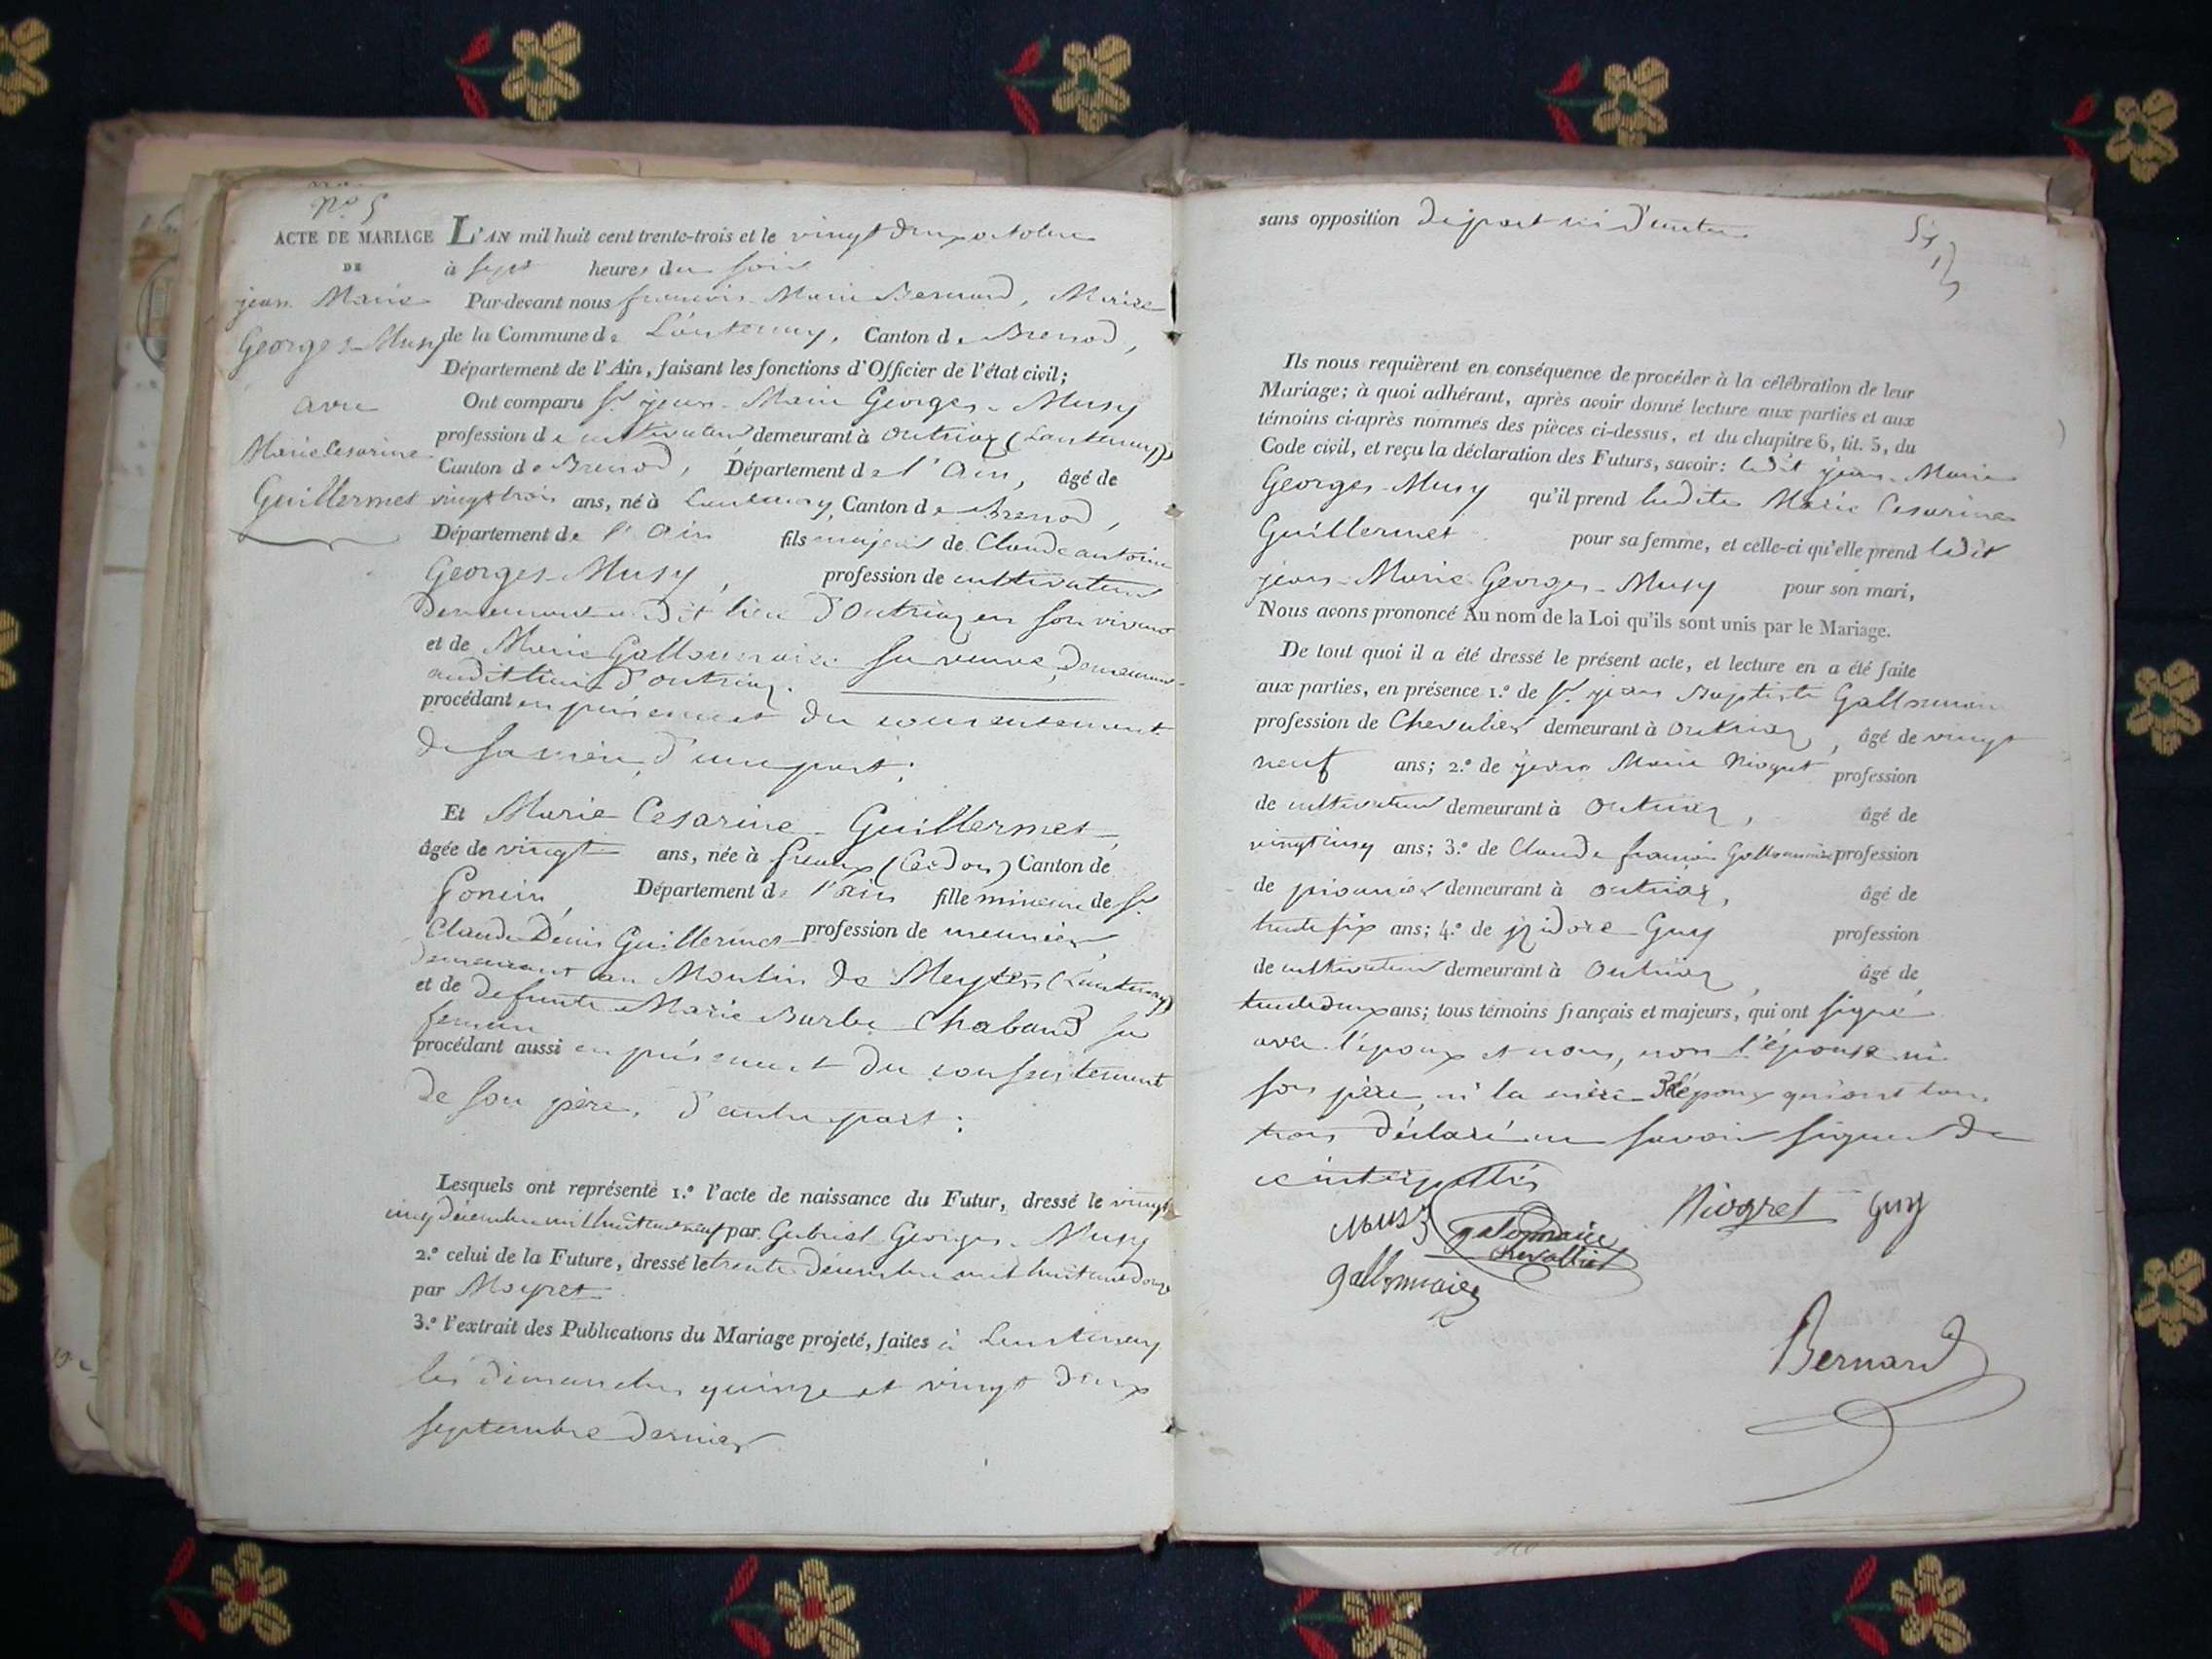 n.º 5
ACTE DE MARIAGE
DE
jean Marie
Georges-Musy
avec
Marie Cesarine
Guillermet
L'AN mil huit cent trente-trois et le vingt deux octobre
à sept heures du soir
Par-devant nous françois Marie Bernard, Maire
de la Commune de Lantenay, Canton de Brenod,
Département de l'Ain, faisant les fonctions d'Officier de l'état civil;
Ont comparu Sr. jean-Marie Georges-Musy
profession de cultivateur demeurant à Outriaz (Lantenay)
Canton de Brenod, Département de l'Ain, âgé de
vingt trois ans, né à Lantenay, Canton de Brenod,
Département de l'Ain fils majeur de Claude antoine
Georges-Musy, profession de cultivateur
demeurant audit lieu d'Outriaz en son vivant
et de Marie Gallonnaise sa veuve, demeurant
audit lieu d'outriaz.
procédant en présence et du consentement
de sa mère, d'une part;
Et Marie Cesarine Guillermet
âgée de vingt ans, née à (Cerdon) Canton de
Poncin, Département de l'ain fille mineure de Sr.
Claude Denis Guillermet profession de meunier
demeurant au Moulin de (Lantenay)
et de defunte Marie Barbe Chabaud sa
femme
procédant aussi en présence et du consentement
de son père, d'autre part:
Lesquels ont représenté 1.º l'acte de naissance du Futur, dressé le vingt
cinq décembre mil huit cent neuf par Gabriel Georges-Musy
2.º celui de la Future, dressé le trente décembre mil huit cent douze
par Moyret
3.º l'extrait des Publications du Mariage projeté, faites à Lantenay
les dimanches quinze et vingt deux
septembre dernier
sans opposition de part ni d'autre
Ils nous requièrent en conséquence de procéder à la célébration de leur
Mariage; à quoi adhérant, après avoir donné lecture aux parties et aux
témoins ci-après nommés des pièces ci-dessus, et du chapitre 6, tit. 5, du
Code civil, et reçu la déclaration des Futurs, savoir: ledit jean-Marie
Georges-Musy qu'il prend ladite Marie Cesarine
Guillermet pour sa femme, et celle-ci qu'elle prend ledit
jean-Marie-Georges-Musy pour son mari,
Nous avons prononcé Au nom de la Loi qu'ils sont unis par le Mariage.
De tout quoi il a été dressé le présent acte, et lecture en a été faite
aux parties, en présence 1.º de Sr. jean Baptiste Gallonnaise
profession de Chevalier demeurant à Outriaz, âgé de vingt
neuf ans; 2.º de jean Marie Niogret profession
de cultivateur demeurant à Outriaz, âgé de
vingt cinq ans; 3.º de Claude françois Gallonnaise profession
de pionnier demeurant à outriaz, âgé de
trente six ans; 4.º de jzidore Guy profession
de cultivateur demeurant à Outriaz, âgé de
trente deux ans; tous témoins français et majeurs, qui ont signé
avec l'époux et nous, non l'épouse ni
son père, ni la mère de l'époux qui ont tous
trois déclaré ne savoir signer de
ce interpellés
Musy galonnaise chevallier Niogret Guy
gallonnaise
Bernard